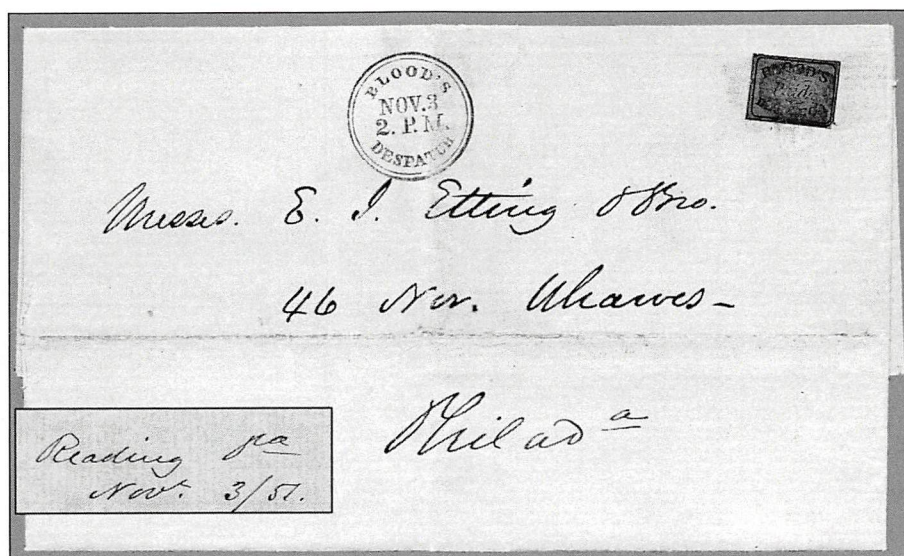 BLOOD'S
NOV. 3
2. P.M.
DESPATCH
BLOOD'S
Messrs. E. J. Etting & Bro.
46 Nor. Wharves
Philad a
Reading pa
Nov. 3/51.